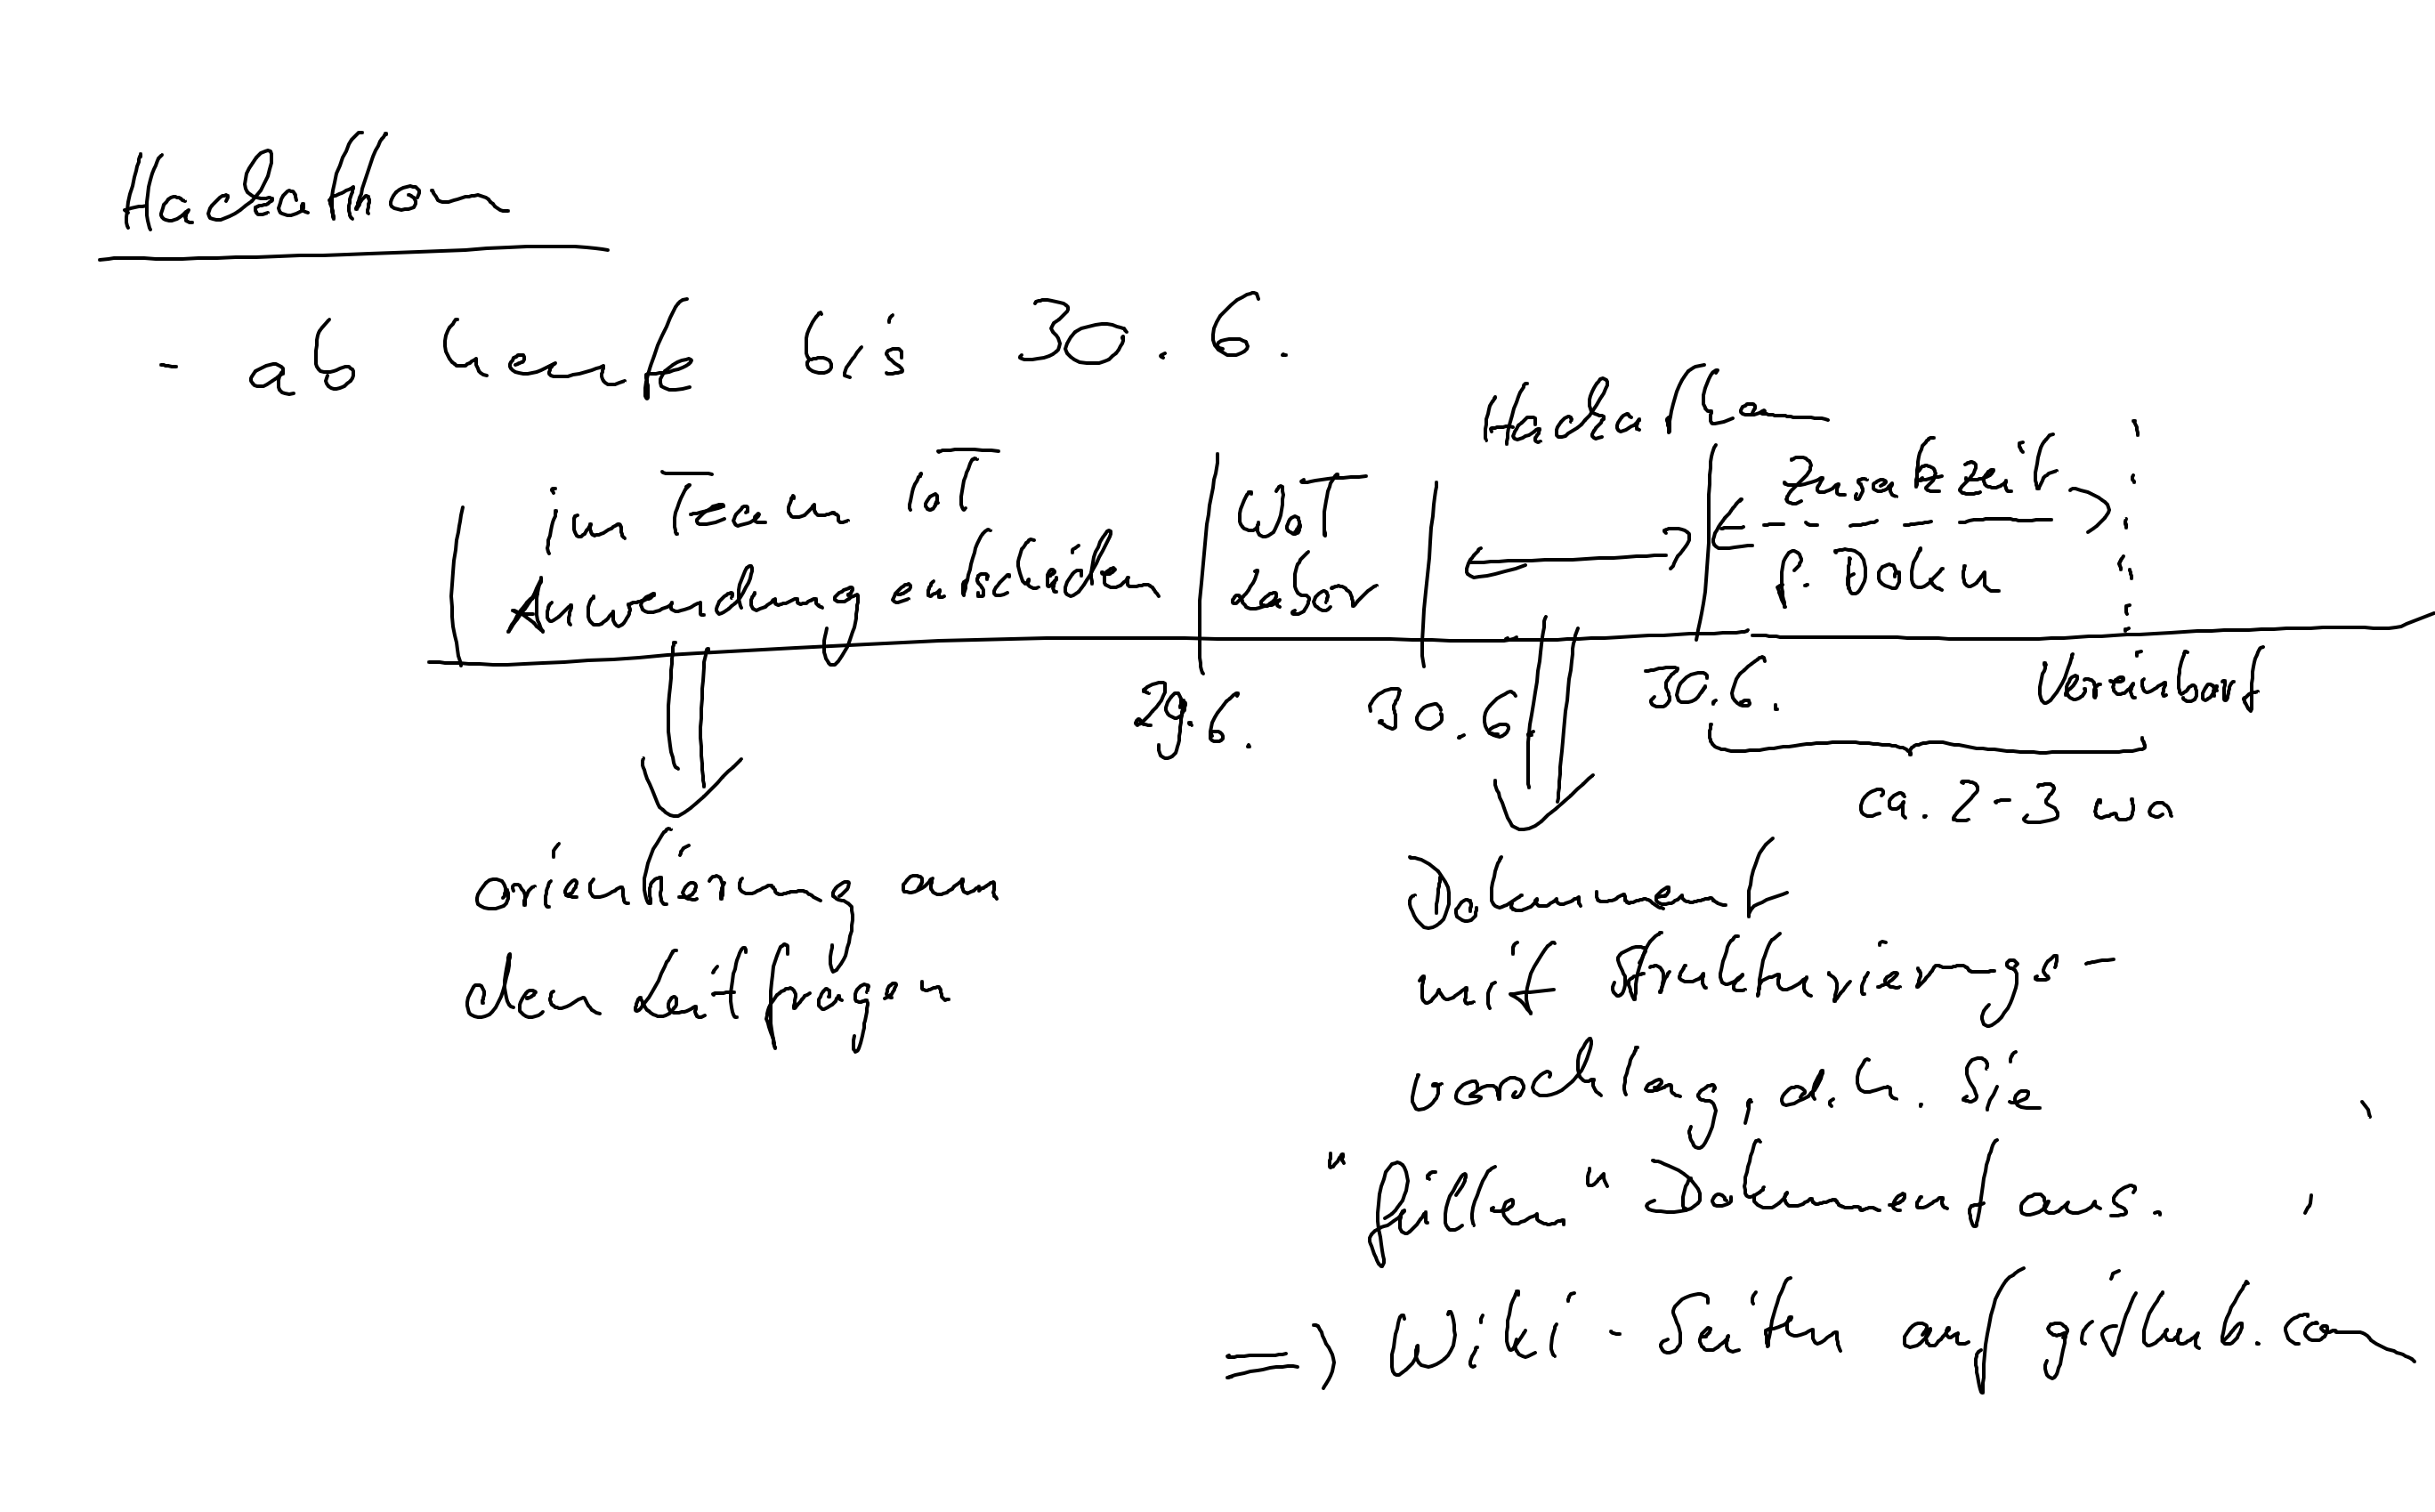 Hackathon
- ab heute bis 30.6.
Hackathon
im Team IoT
Anwendung entscheiden
WoT
Zusatzzeit
f. Doku
29.6.
30.6.
30.6.
Vereinbart
ca. 2-3 Wo
orientierung an
den Leitfragen
Dokument
mit Strukturierungs-
vorschlag, d.h. Sie
"füllen" Dokument aus.
=> Wiki-Seiten auf github.com